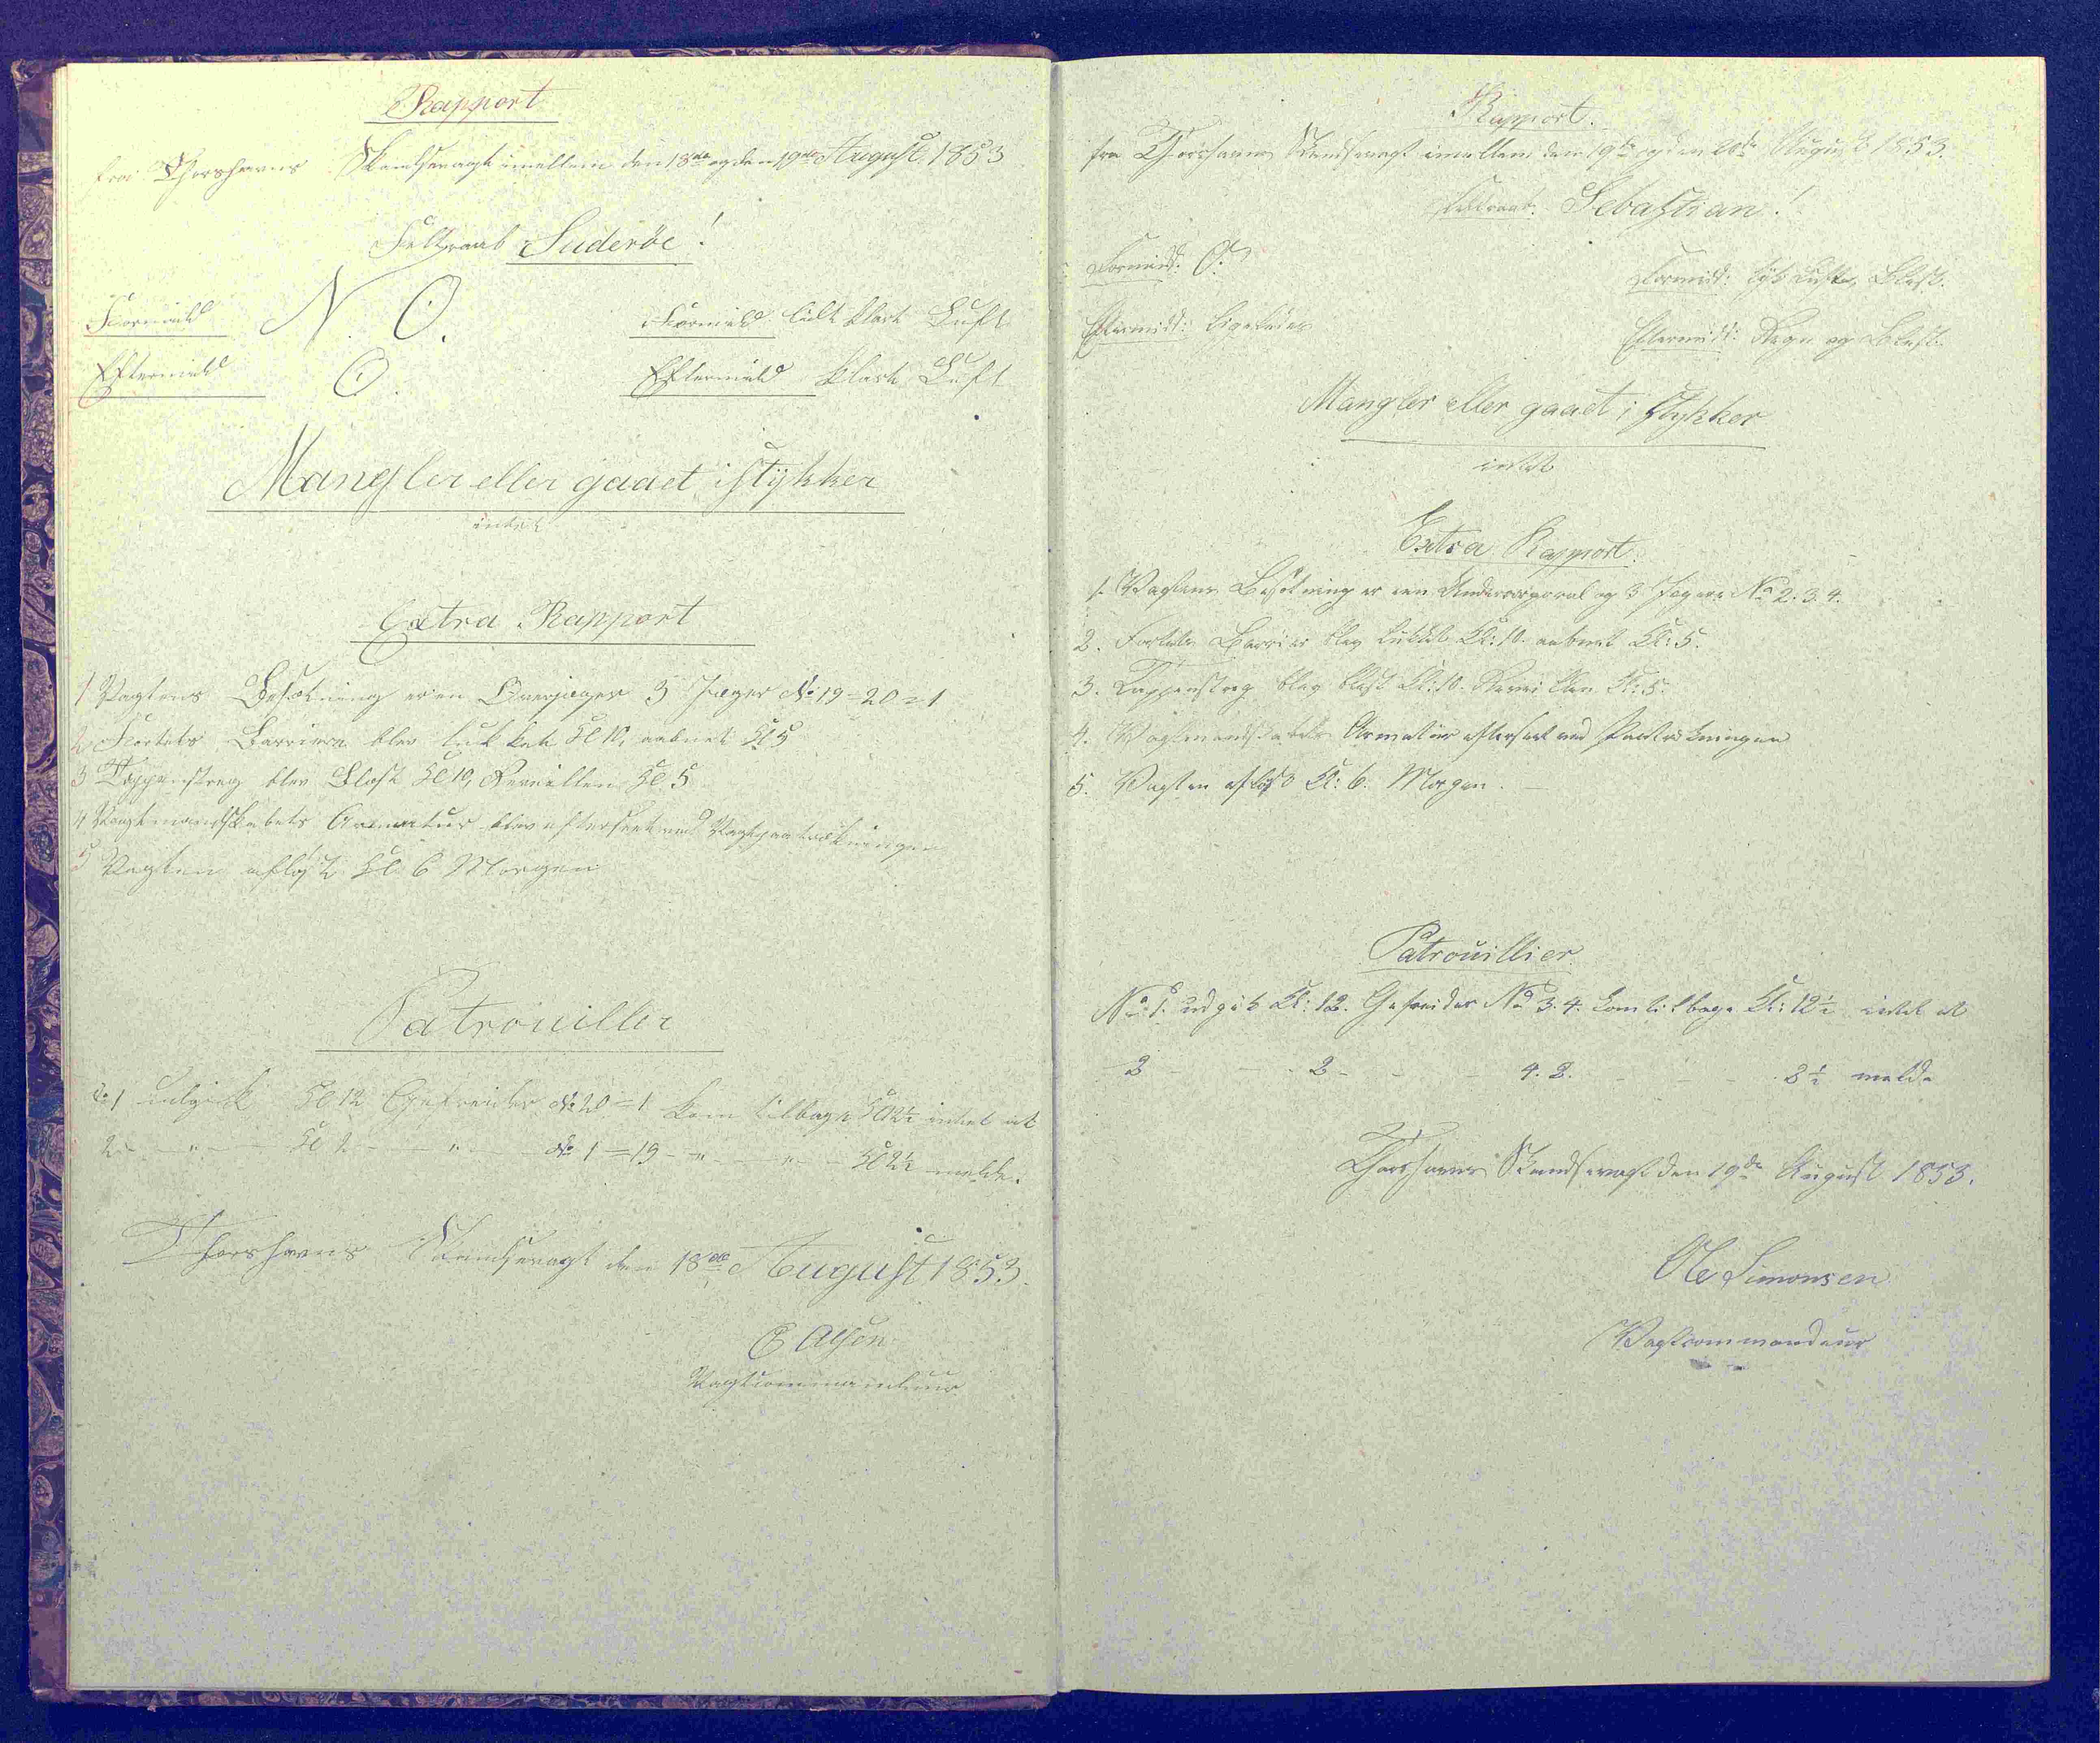 Rapport
fra Thorshavns Skandsevagt imellem den 18de og den 19de August 1853
Feltraab Suderöe!
Formidd N. O. Formidd lidt klart Luft
Eftermidd O. Eftermidd klart Luft
Mangler eller gaaet istykker
intet
Extra Rapport
1 Vagtens Besætning er en Overjæger 3 Jæger No 19=20=1
2 Fortets Barriere blev lukket Kl 10, aabnet Kl 5
3 Tappenstreg blev Blæst Kl 10, Reveillen Kl 5
4 Vagtmandskabets Armatur blev efterseet ved Vagtpaatrækningen
5 Vagten afløst Kl 6 Morgen
Patrouiller
No 1 udgick Kl 12 Gefreider No 20=1 kom tilbage Kl 12½ intet at
2 - " - Kl 2 - " - No 1=19 - " - " - Kl 2½ melde.
Thorshavns Skandsevagt den 18de August 1853.
Vagtcommandeur
Rapport.
fra Thorshavns Skandsevagt imellem den 19de og den 20de August 1853.
Feltraab: Sebastian!
Formidd: O. Formidd: tyk Luft og Blæst.
Eftermidd: ligeledes Eftermidd: Regn og Blæst.
Mangler eller gaaet i Stykker
intet
Extra Rapport.
1. Vagtens Besætning er een Undercorporal og 3 Jægere No 2. 3. 4.
2. Fortets Barrier blev lukket Kl: 10. aabnet Kl: 5.
3. Tappenstreg blev blæst Kl: 10. Reveillen Kl: 5.
4. Vagtmandskabets Armatur efterseet ved Paatrækningen
5. Vagten afløst Kl: 6. Morgen.
Patrouillier
No 1. udgik Kl: 12. Gefreider No 3. 4. kom tilbage Kl: 12½ intet at
2 - - 2 - - - 4. 2. - - - 2½ melde
Thorshavns Skandsevagt den 19de August 1853.
Ole Simonsen
Vagtcommandeur